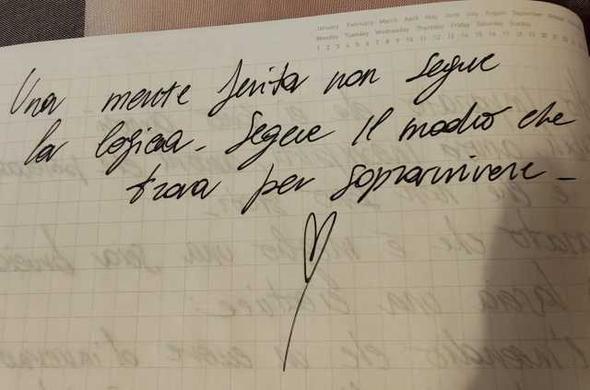 January February March April May June July August September October
Monday Tuesday Wednesday Thursday Friday Saturday Sunday
1 2 3 4 5 6 7 8 9 10 11 12 13 14 15 16 17 18 19 20 21 22 23 24 25
Una mente ferita non segue
la logica. Segue il modo che
trova per sopravvivere -